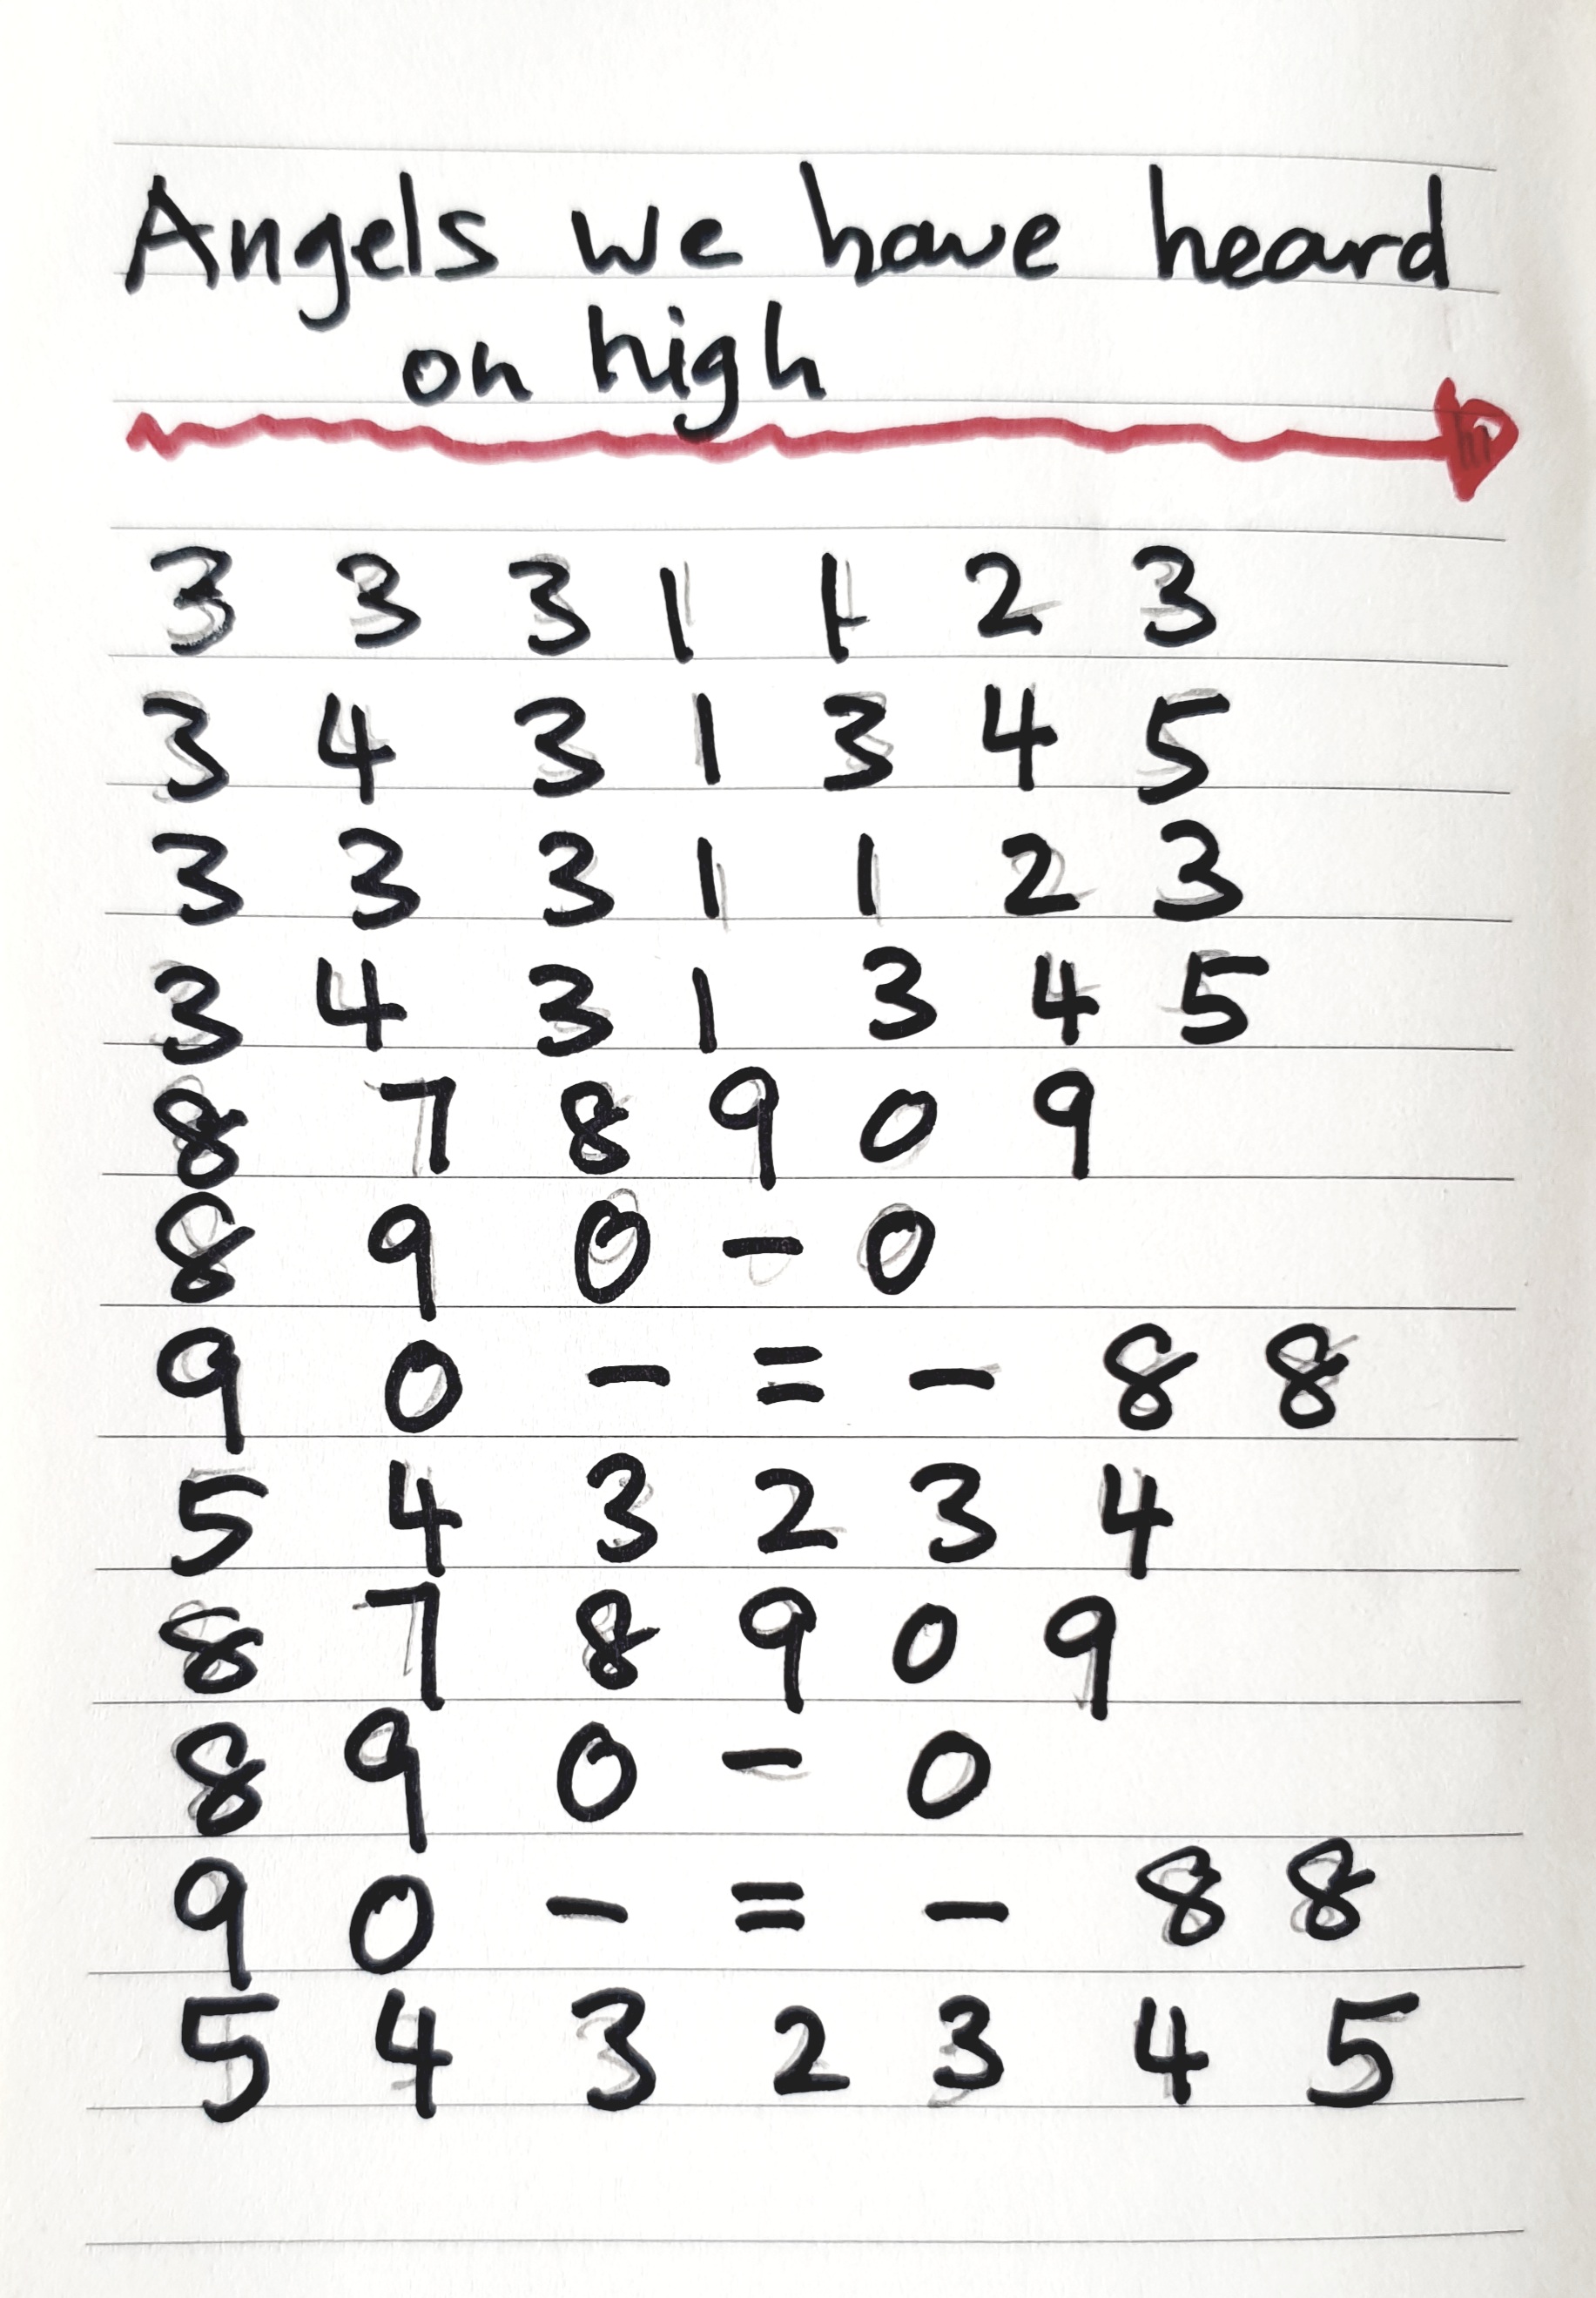 Angels we have heard
on high
3 3 3 1 1 2 3
3 4 3 1 3 4 5
3 3 3 1 1 2 3
3 4 3 1 3 4 5
8 7 8 9 0 9
8 9 0 - 0
9 0 - = - 8 8
5 4 3 2 3 4
8 7 8 9 0 9
8 9 0 - 0
9 0 - = - 8 8
5 4 3 2 3 4 5